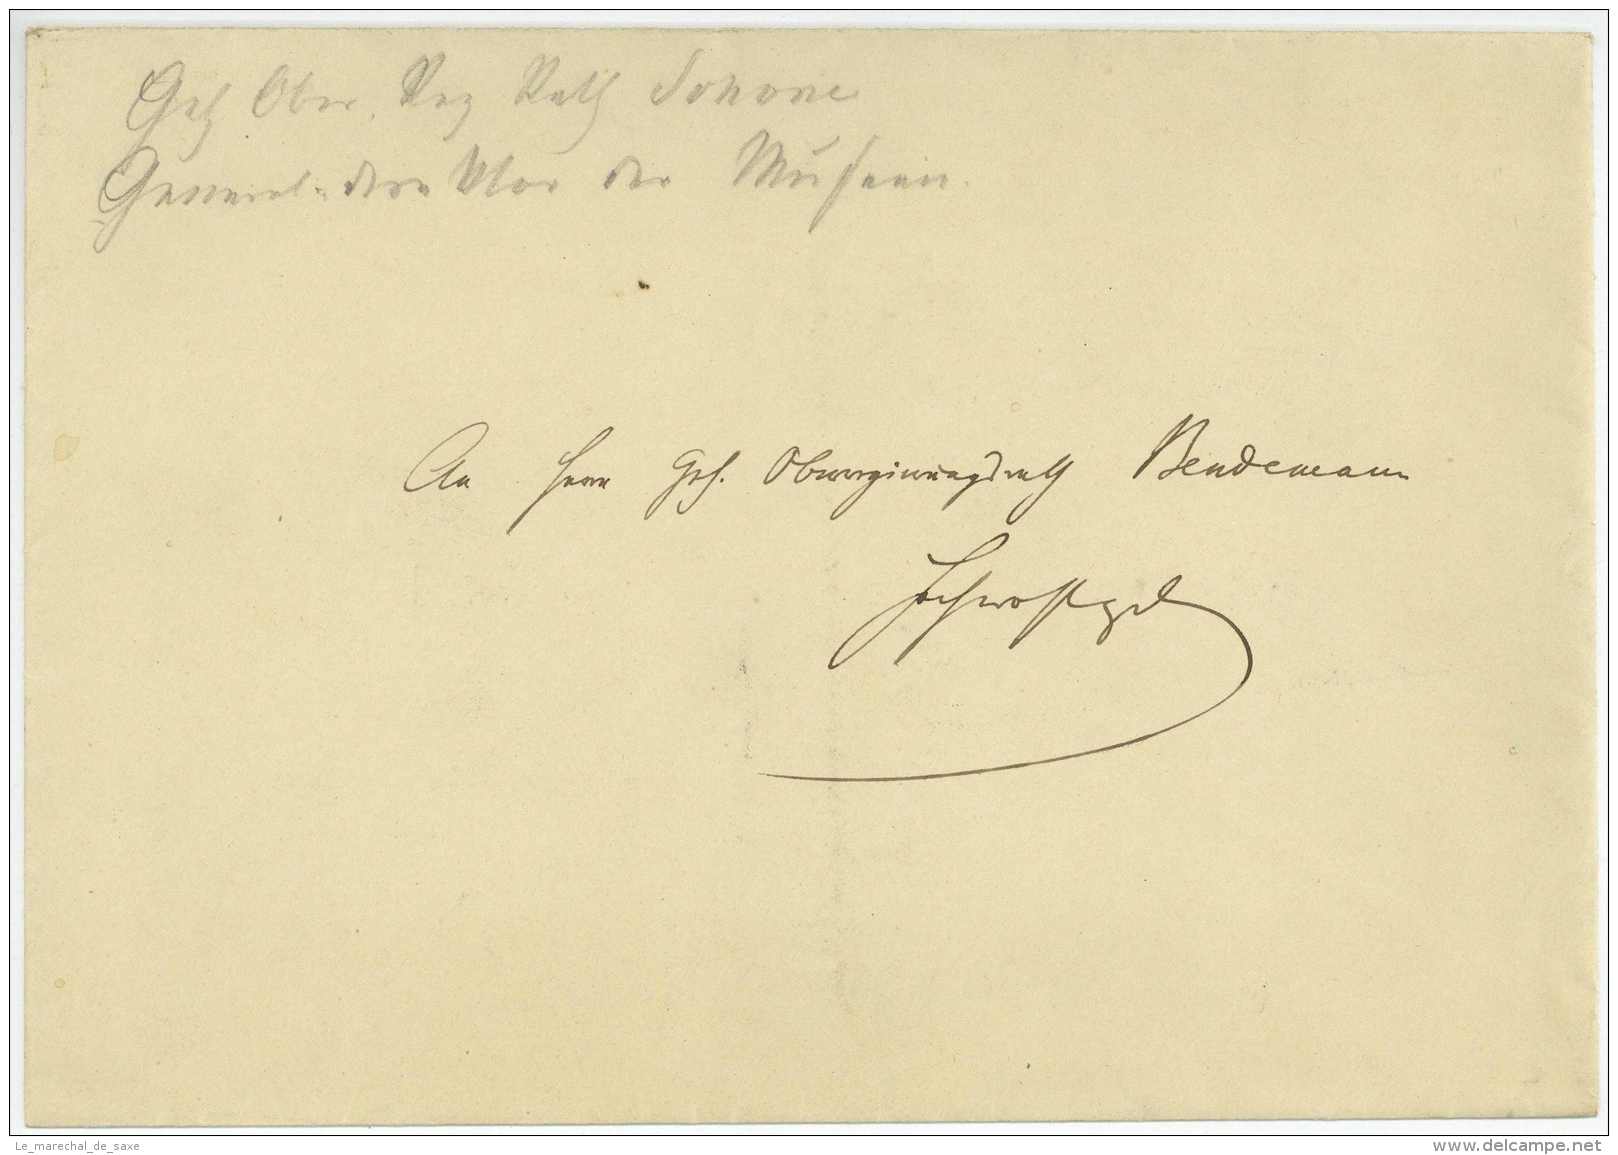 Geh Ober. Reg Rath Schöne
General-direktor der Museen.
An Herrn Geh. Oberregierungsrath Bendemann
Hochwohlgeb
Le_marechal_de_saxe
www.delcampe.net